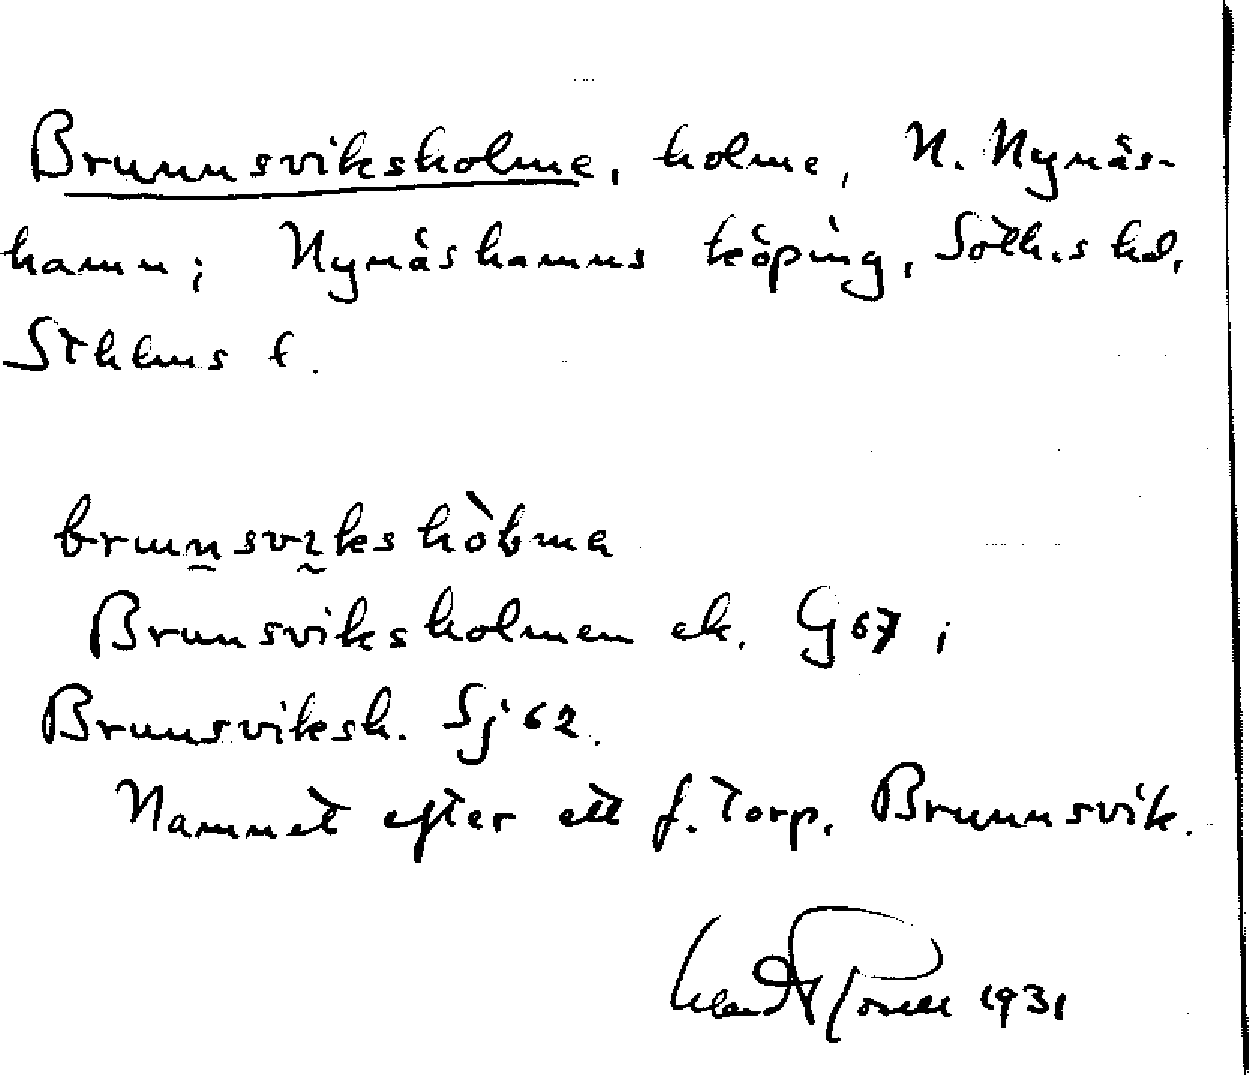 Brunnsviksholme, holme, N. Nynäs-
hamn; Nynäshamns köping, Soth.s hd,
Sthlms l.
brunnsvikshòlma
Brunsviksholmen ek. G 67 ;
Brunsviksh. Sj 62.
Namnet efter ett f. torp, Brunnsvik.
1931